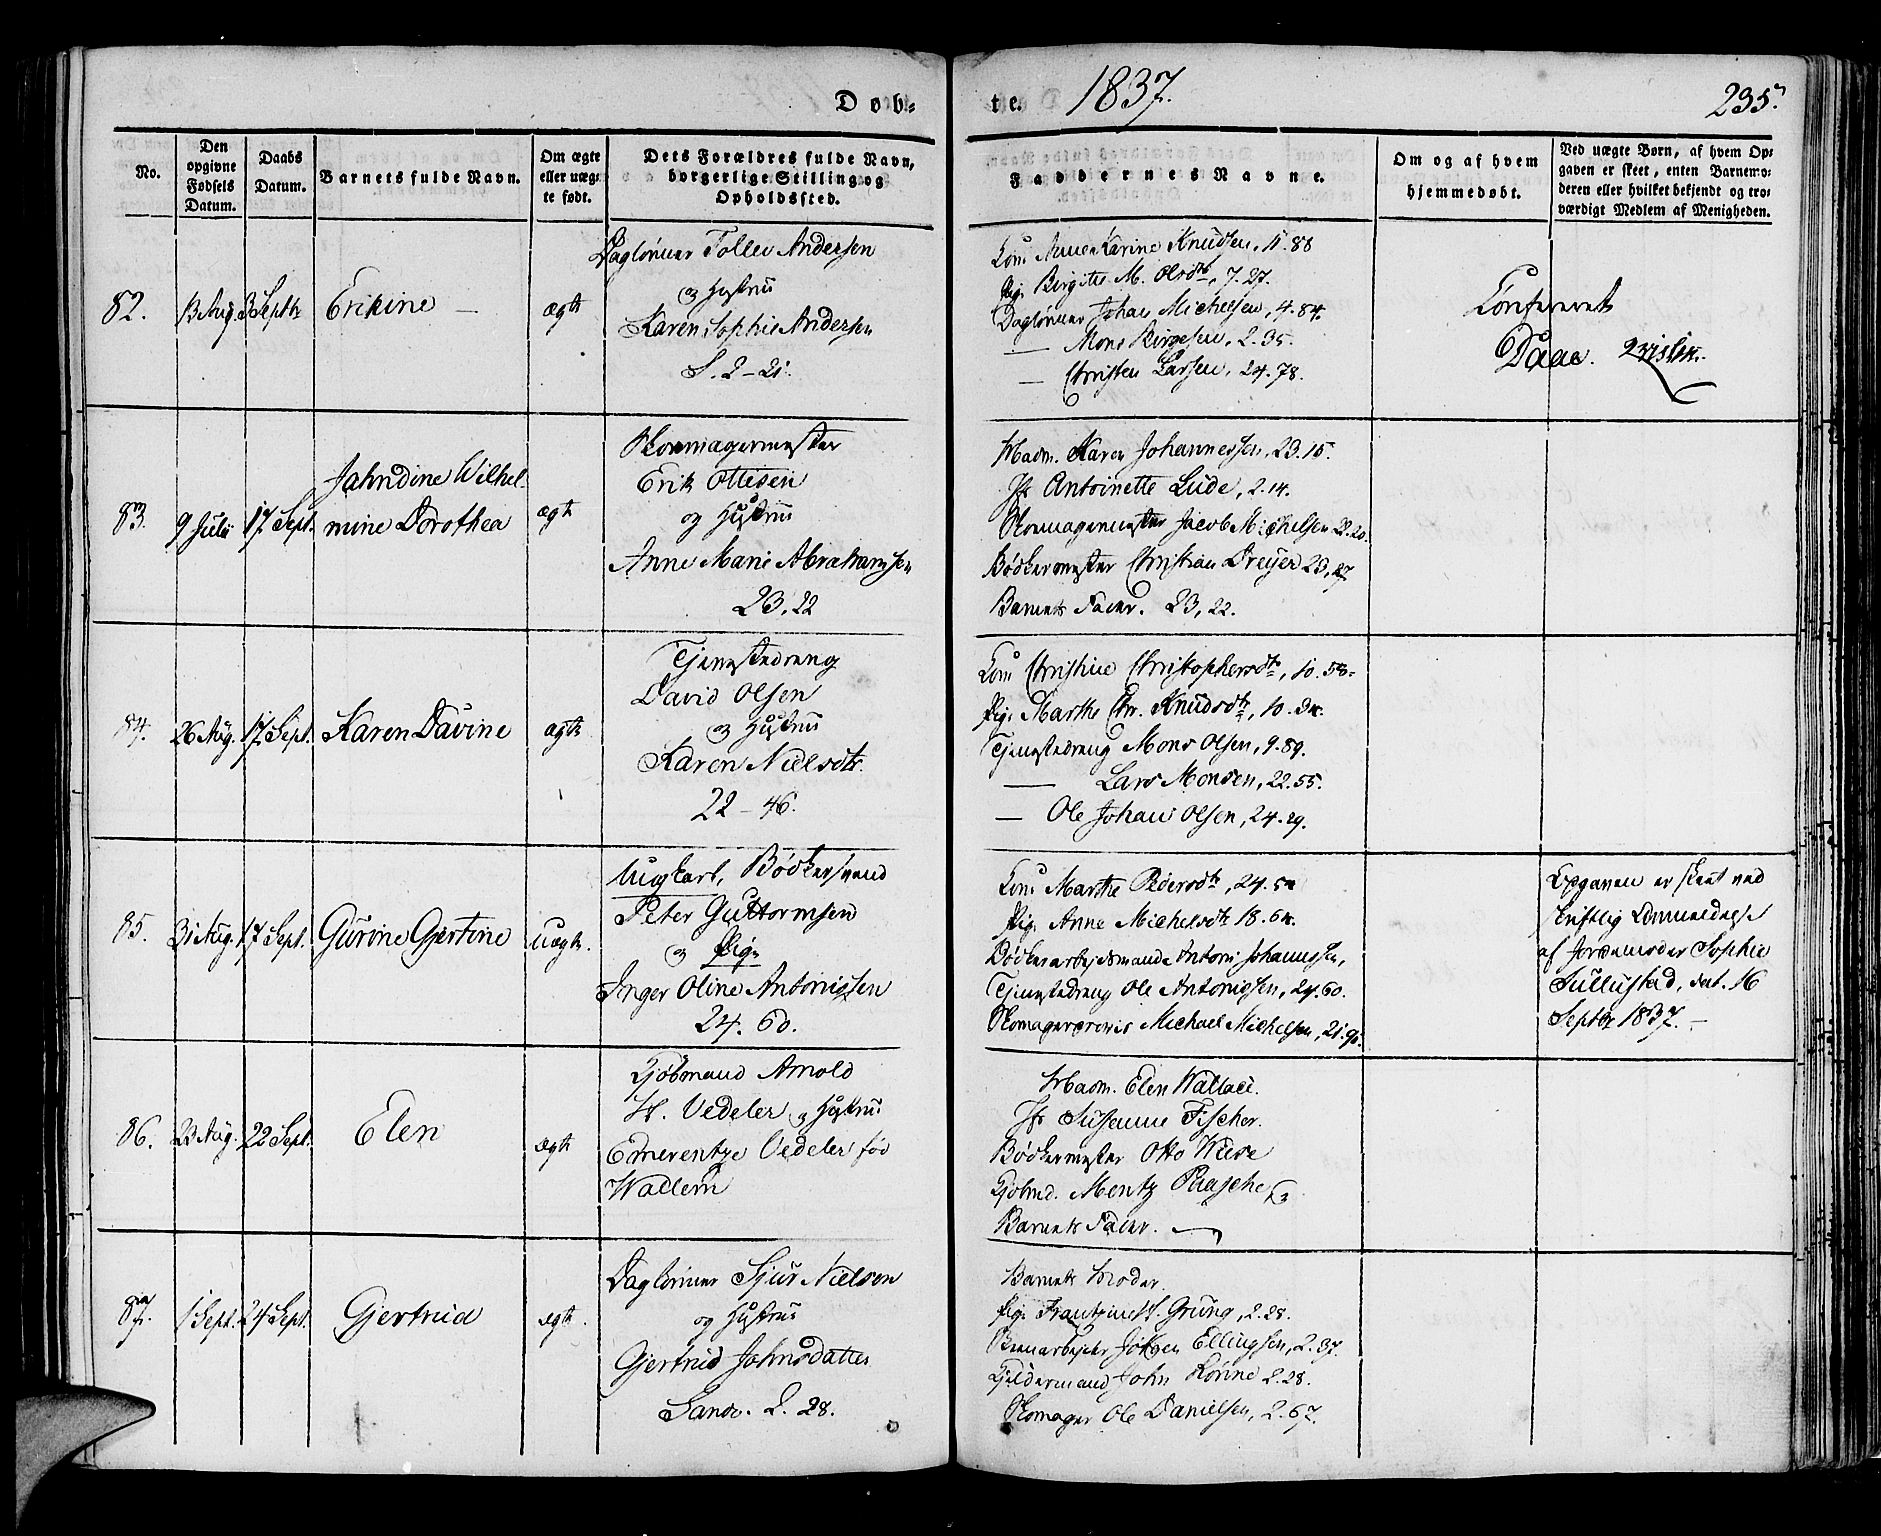 Døb-
te. 1837.
235.
No.
Den opgivne Fødsels Datum.
Daabs Datum.
Barnets fulde Navn.
Om ægte eller uægte født.
Dets Forældres fulde Navn, borgerlige Stilling og Opholdssted.
Faddernes Navne.
Om og af hvem hjemmedøbt.
Ved uægte Børn, af hvem Op-
gaven er skeet, enten Barnemo-
deren eller hvilket bekjendt og tro-
værdigt Medlem af Menigheden.
82.
13 Aug.
3 Septbr
Erikine —
ægte
Daglønner Tollev Andersen
og Hustrue
Karen Sophie Andersen
S. 2-21.
Kone Anne Karine Knudsen, 11.88
Pige Birgitte M. Olsdtr, 7.27.
Daglønner Johan Michelsen, 4.84.
— Mons Birgesen, 2.35.
— Christen Larsen, 24.78.
Confereret
Daae.
83.
9 Julii
17 Sept.
Jahndine Wilhel-
mine Dorothea
ægte
Skomagermester
Erik Ottesen
og Hustrue
Anne Marie Abrahamsen
23, 22
Madm. Karen Johannessen, 23.15.
Jfr Antoinette Lude, 2.14.
Skomagermester Jacob Michelsen 22.20.
Bødkermester Christian Dreyer 23, 27
Barnets Fader. 23, 22.
84.
26 Aug.
17 Sept.
Karen Davine
ægte
Tjenestedreng
David Olsen
og Hustrue
Karen Nielsdtr.
22-46.
Kone Christine Christophersdtr, 10.58.
Pige Marthe Chr. Knudsdtr, 10.
Tjenestedreng Mons Olsen, 9.89.
— Lars Monsen, 22.55.
— Ole Johan Olsen, 24.29.
85.
31 Aug.
17 Sept.
Gurine Gjertine
Uægte.
Ungkarl, Bødkersvend
Peter Guttormsen
og Pige
Inger Oline Antonissen
24. 60.
Kone Marthe Pedersdtr, 24.5
Pige Anne Michelsdtr 18.6
Bødkerarbejdsmand Antoni Johannssen,
Tjenestedreng Ole Antonissen, 24.60.
Skomager Michael Michelsen, 21.9
Opgaven er skeet ved
skriftlig Anmeldelse
af Jordemoder Sophie
Sullustad, dat. 16
Septbr 1837. —
86.
23 Aug.
22 Sept.
Elen
ægte
Kjøbmand Arnold
H. Vedeler og Hustrue
Emerentze Vedeler fød
Wallem
Madm. Elen Wallace.
Jfr Susanne Fischer.
Bødkermester Otto Wiese
Kjøbmd. Mentz Paasche og
Barnets Fader. —
87.
1 Sept.
24 Sept.
Gjertrud
ægte.
Daglønner Sjur Nielsen
og Hustrue
Gjertrud Johnsdatter
Sandv. 2. 28.
Barnets Moder.
Pige Frantzine H. Grung, 2.28.
Jørgen Ellingsen, 2.37.
John Rønne 2.28.
Skomager Ole Danielsen, 2.67.